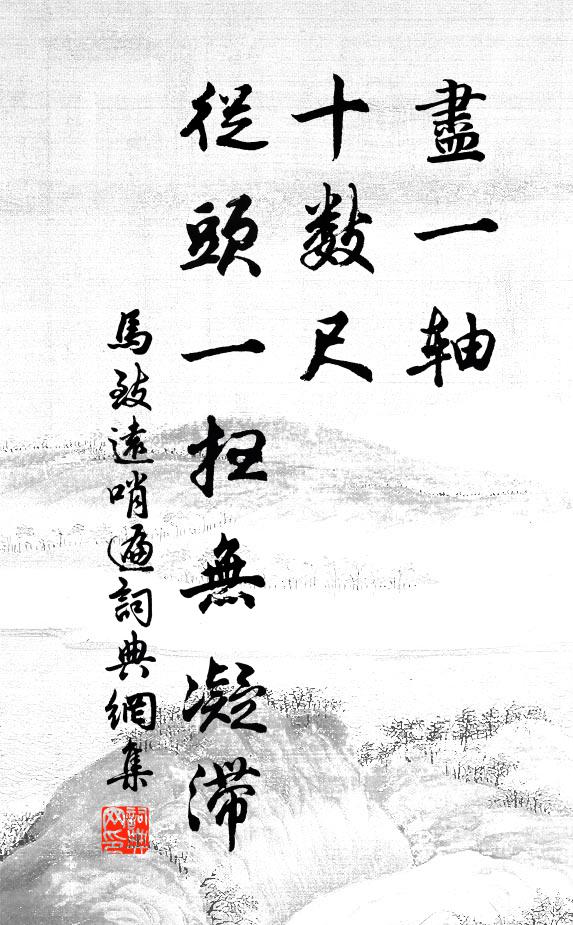 盡一軸
十數尺
從頭一掃無凝滯
馬致遠哨遍詞典網集